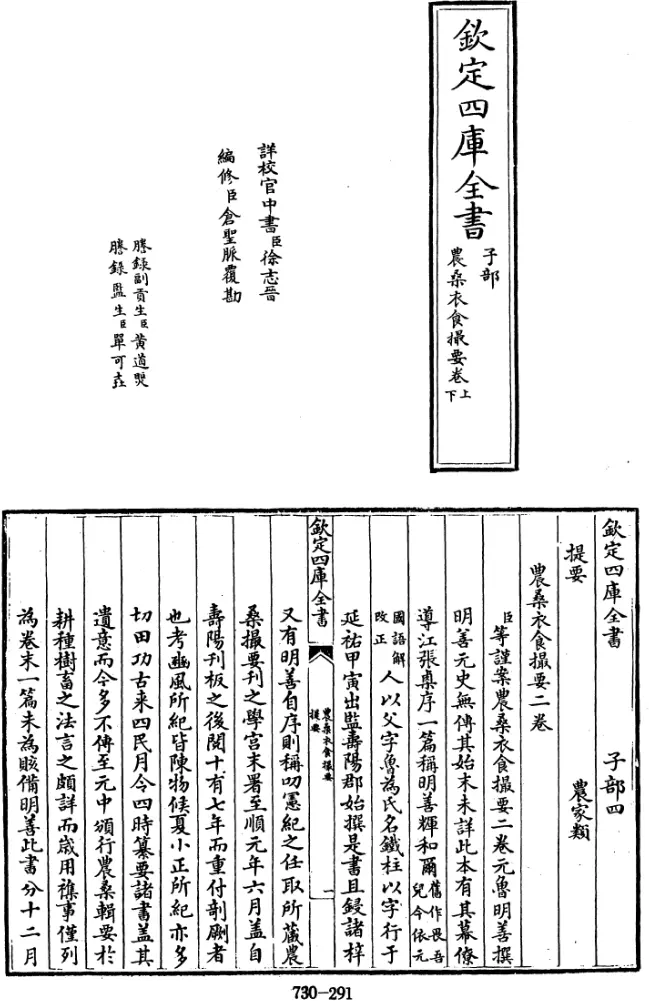 欽定四庫全書
子部
農桑衣食撮要卷上下
詳校官中書臣徐志晉
編修臣倉聖脈覆勘
謄錄副貢生臣黃道煚
謄錄監生臣單可垚
欽定四庫全書
子部四
提要
農家類
農桑衣食撮要二卷
臣等謹案農桑衣食撮要二卷元魯明善撰
明善元史無傳其始末未詳此本有其幕僚
導江張㮚序一篇稱明善輝和爾舊作畏吾兒今依元
國語解改正人以父字魯為氏名鐵柱以字行于
延祐甲寅出監壽陽郡始撰是書且鋟諸梓
欽定四庫全書
農桑衣食撮要
提要
一
又有明善自序則稱叨憲紀之任取所藏農
桑撮要刊之學宮末署至順元年六月蓋自
壽陽刊板之後閱十有七年而重付剞劂者
也考豳風所紀皆陳物候夏小正所紀亦多
切田功古來四民月令四時纂要諸書蓋其
遺意而今多不傳至元中頒行農桑輯要於
耕種樹畜之法言之頗詳而歲用襍事僅列
為卷末一篇未為賅備明善此書分十二月
730-291